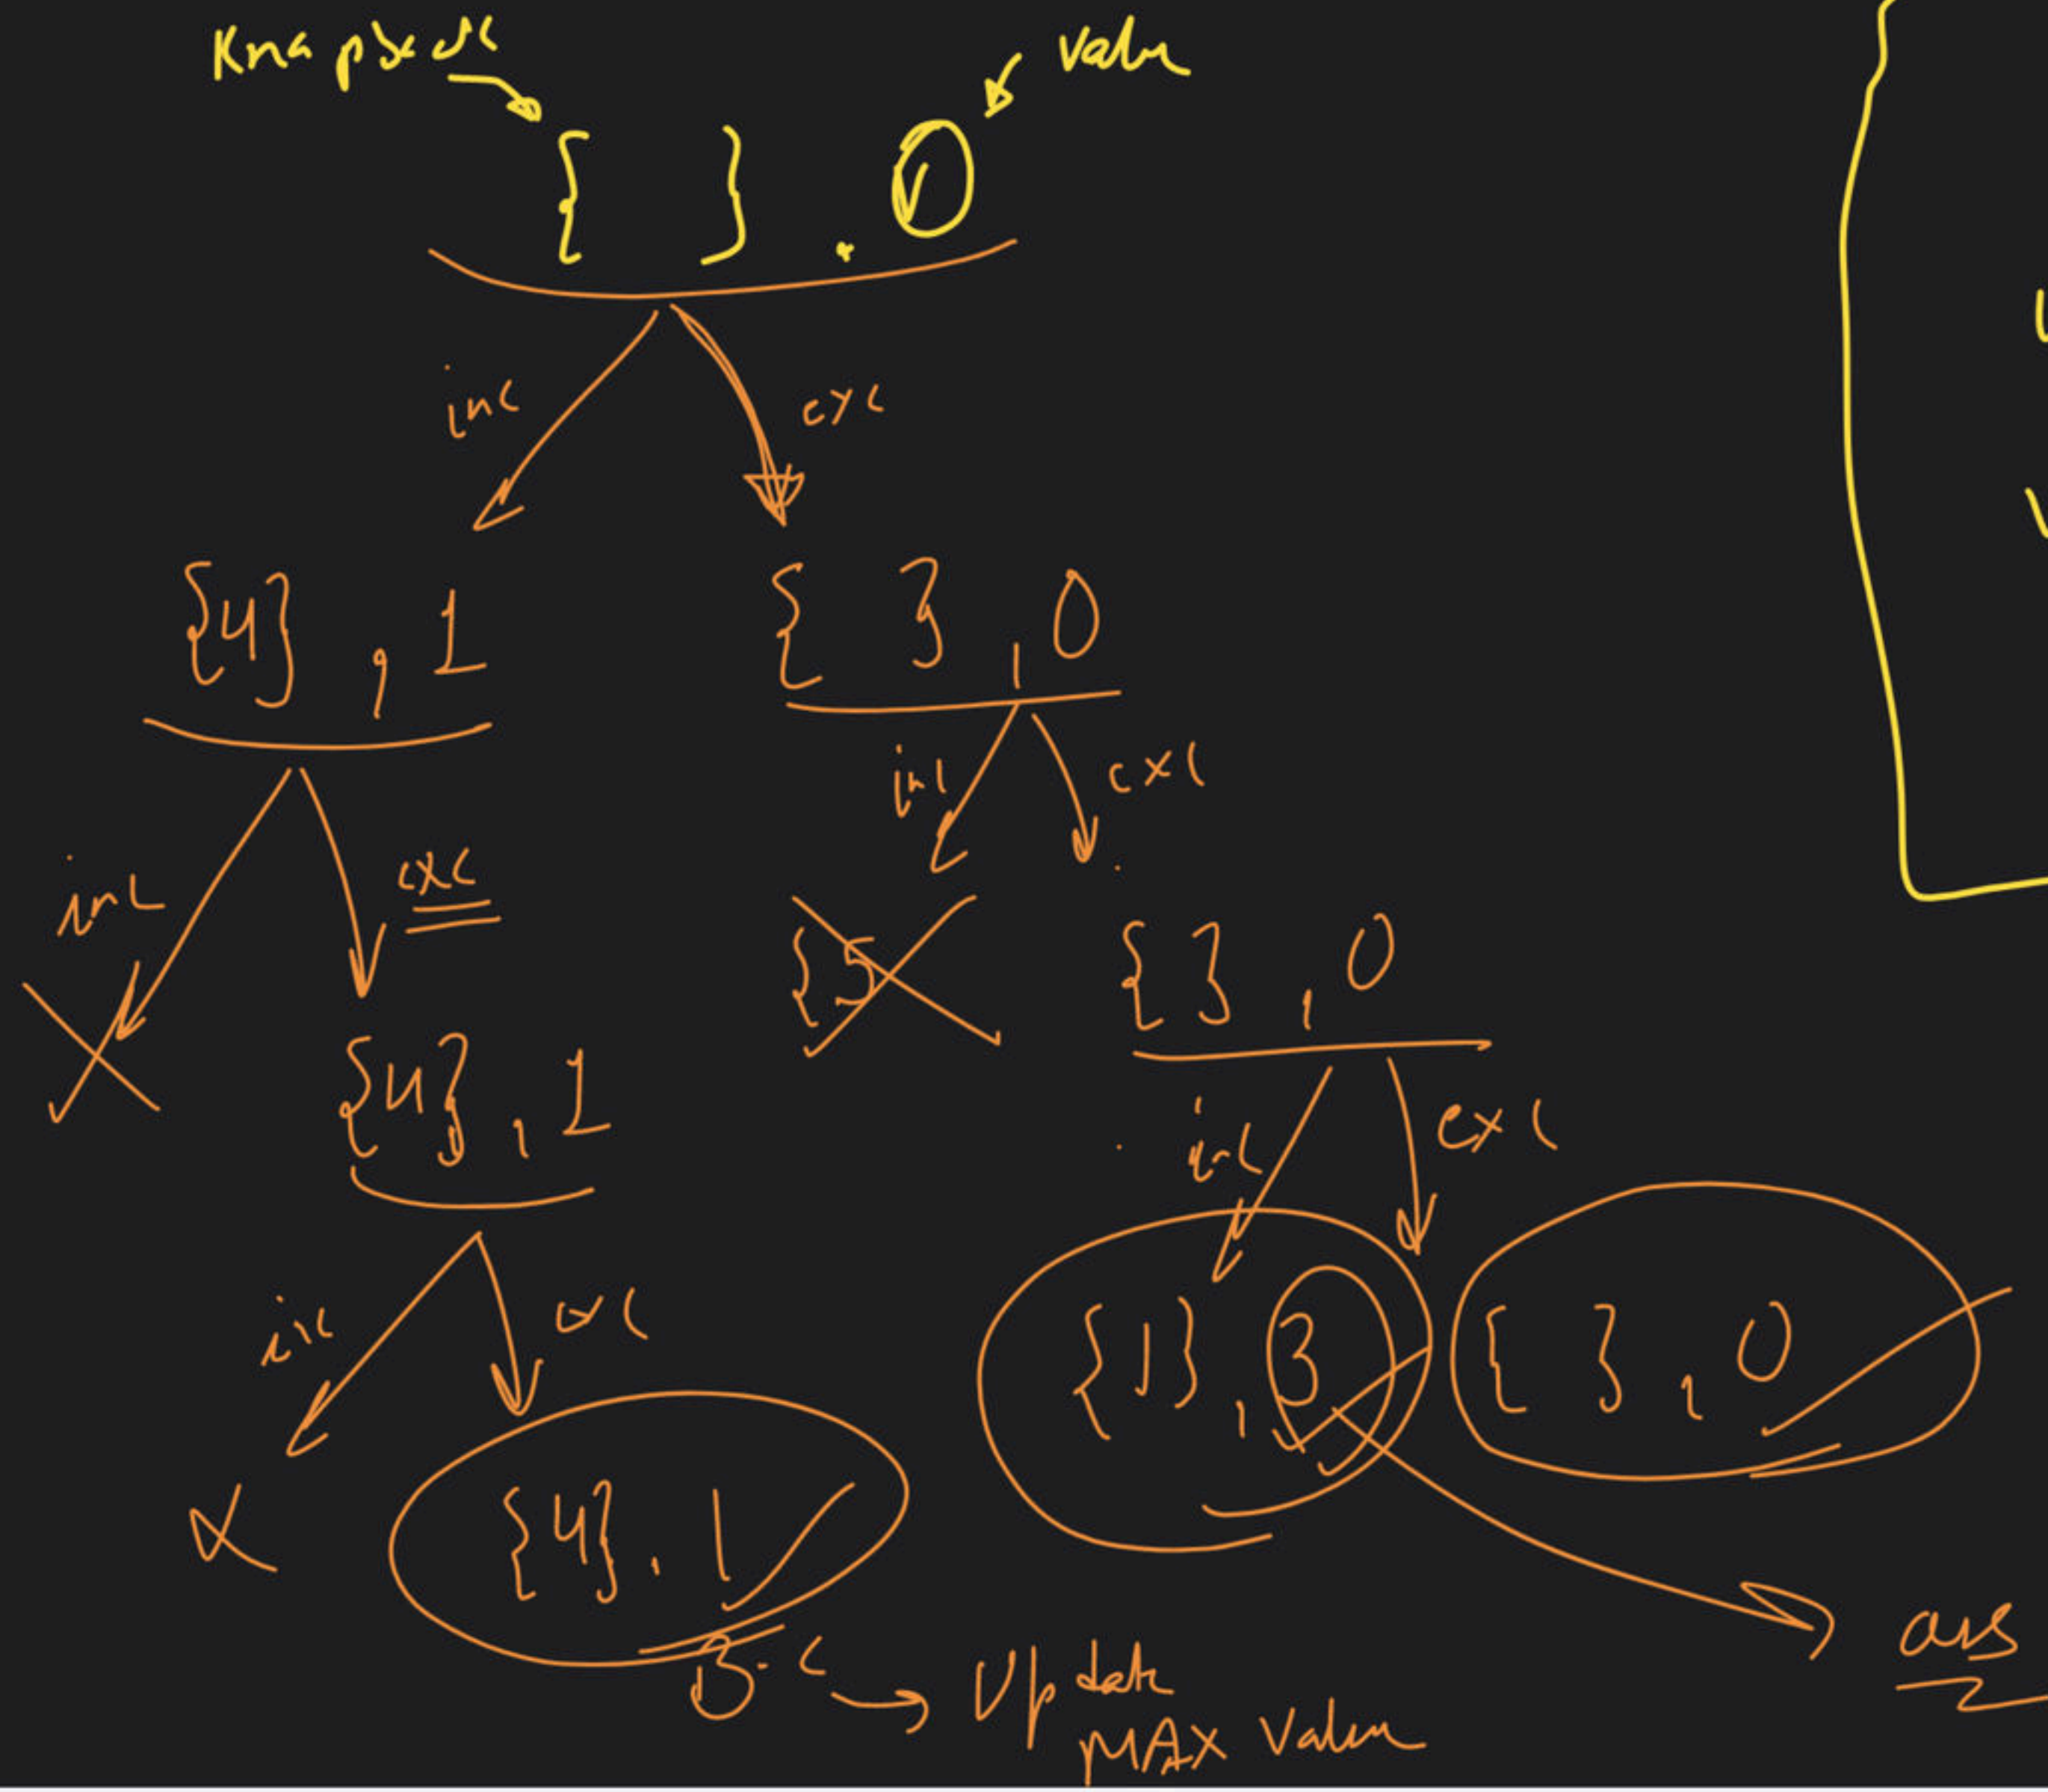 Knapsack value
{ } . 0
inc exc
{4} , 1 { } , 0
inc exc
inc exc
{5 { } , 0
{4} , 1
inc exc
inc exc
{1} , 3 { } , 0
{4} . 1
B.C → Update ans
MAX Value